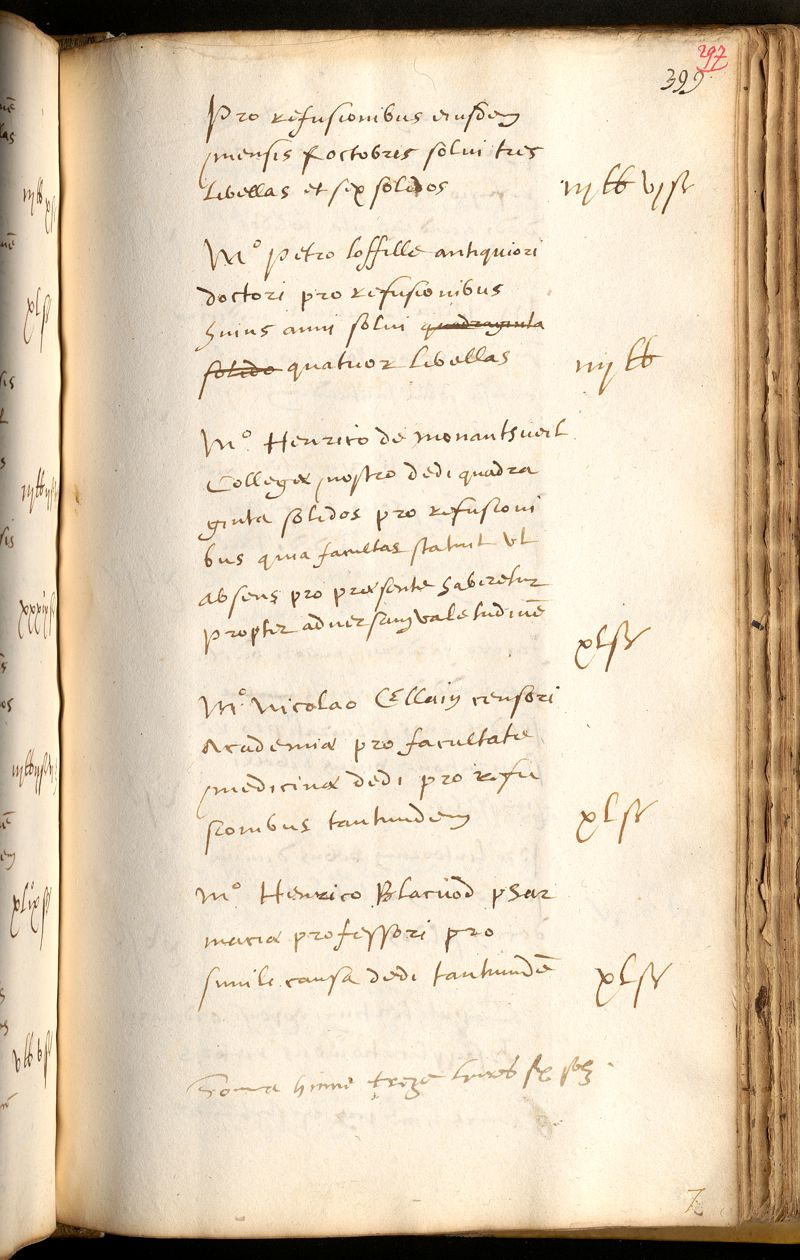 297
399
Pro refusionibus eiusdem
mensis octobris solui tres
libellas et sex solidos iij lb vj s
M° Petro loffille antiquiori
doctori pro refusionibus
huius anni solui quadraginta
solido quatuor libellas iiij lb
M° Henrico de monantheuil
Collegæ nostro dedi quadra
ginta solidos pro refusioni
bus quia facultas statuit vt
absens pro præsente haberetur
propter aduersam valetudinē xl s
M° Nicolao Ellain censori
Academiæ pro facultate
medicinæ dedi pro refu
sionibus tantundem xl s
M° Henrico Blacuod phar
maciæ professori pro
simili causa dedi tantundē xl s
Soma huius treze livres six solz
7